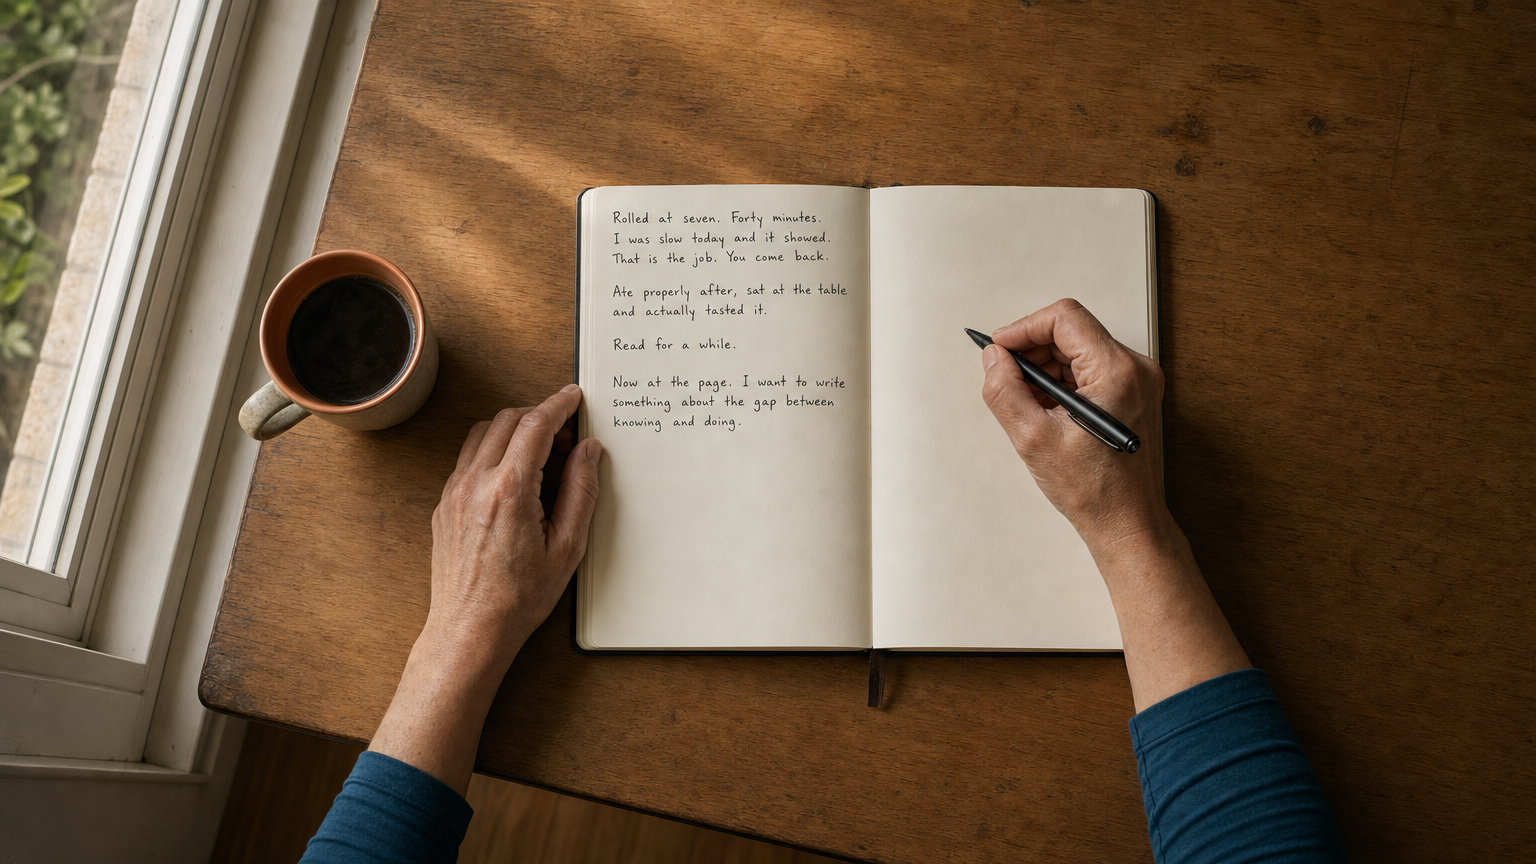 Rolled at seven. Forty minutes.
I was slow today and it showed.
That is the job. You come back.
Ate properly after, sat at the table
and actually tasted it.
Read for a while.
Now at the page. I want to write
something about the gap between
knowing and doing.